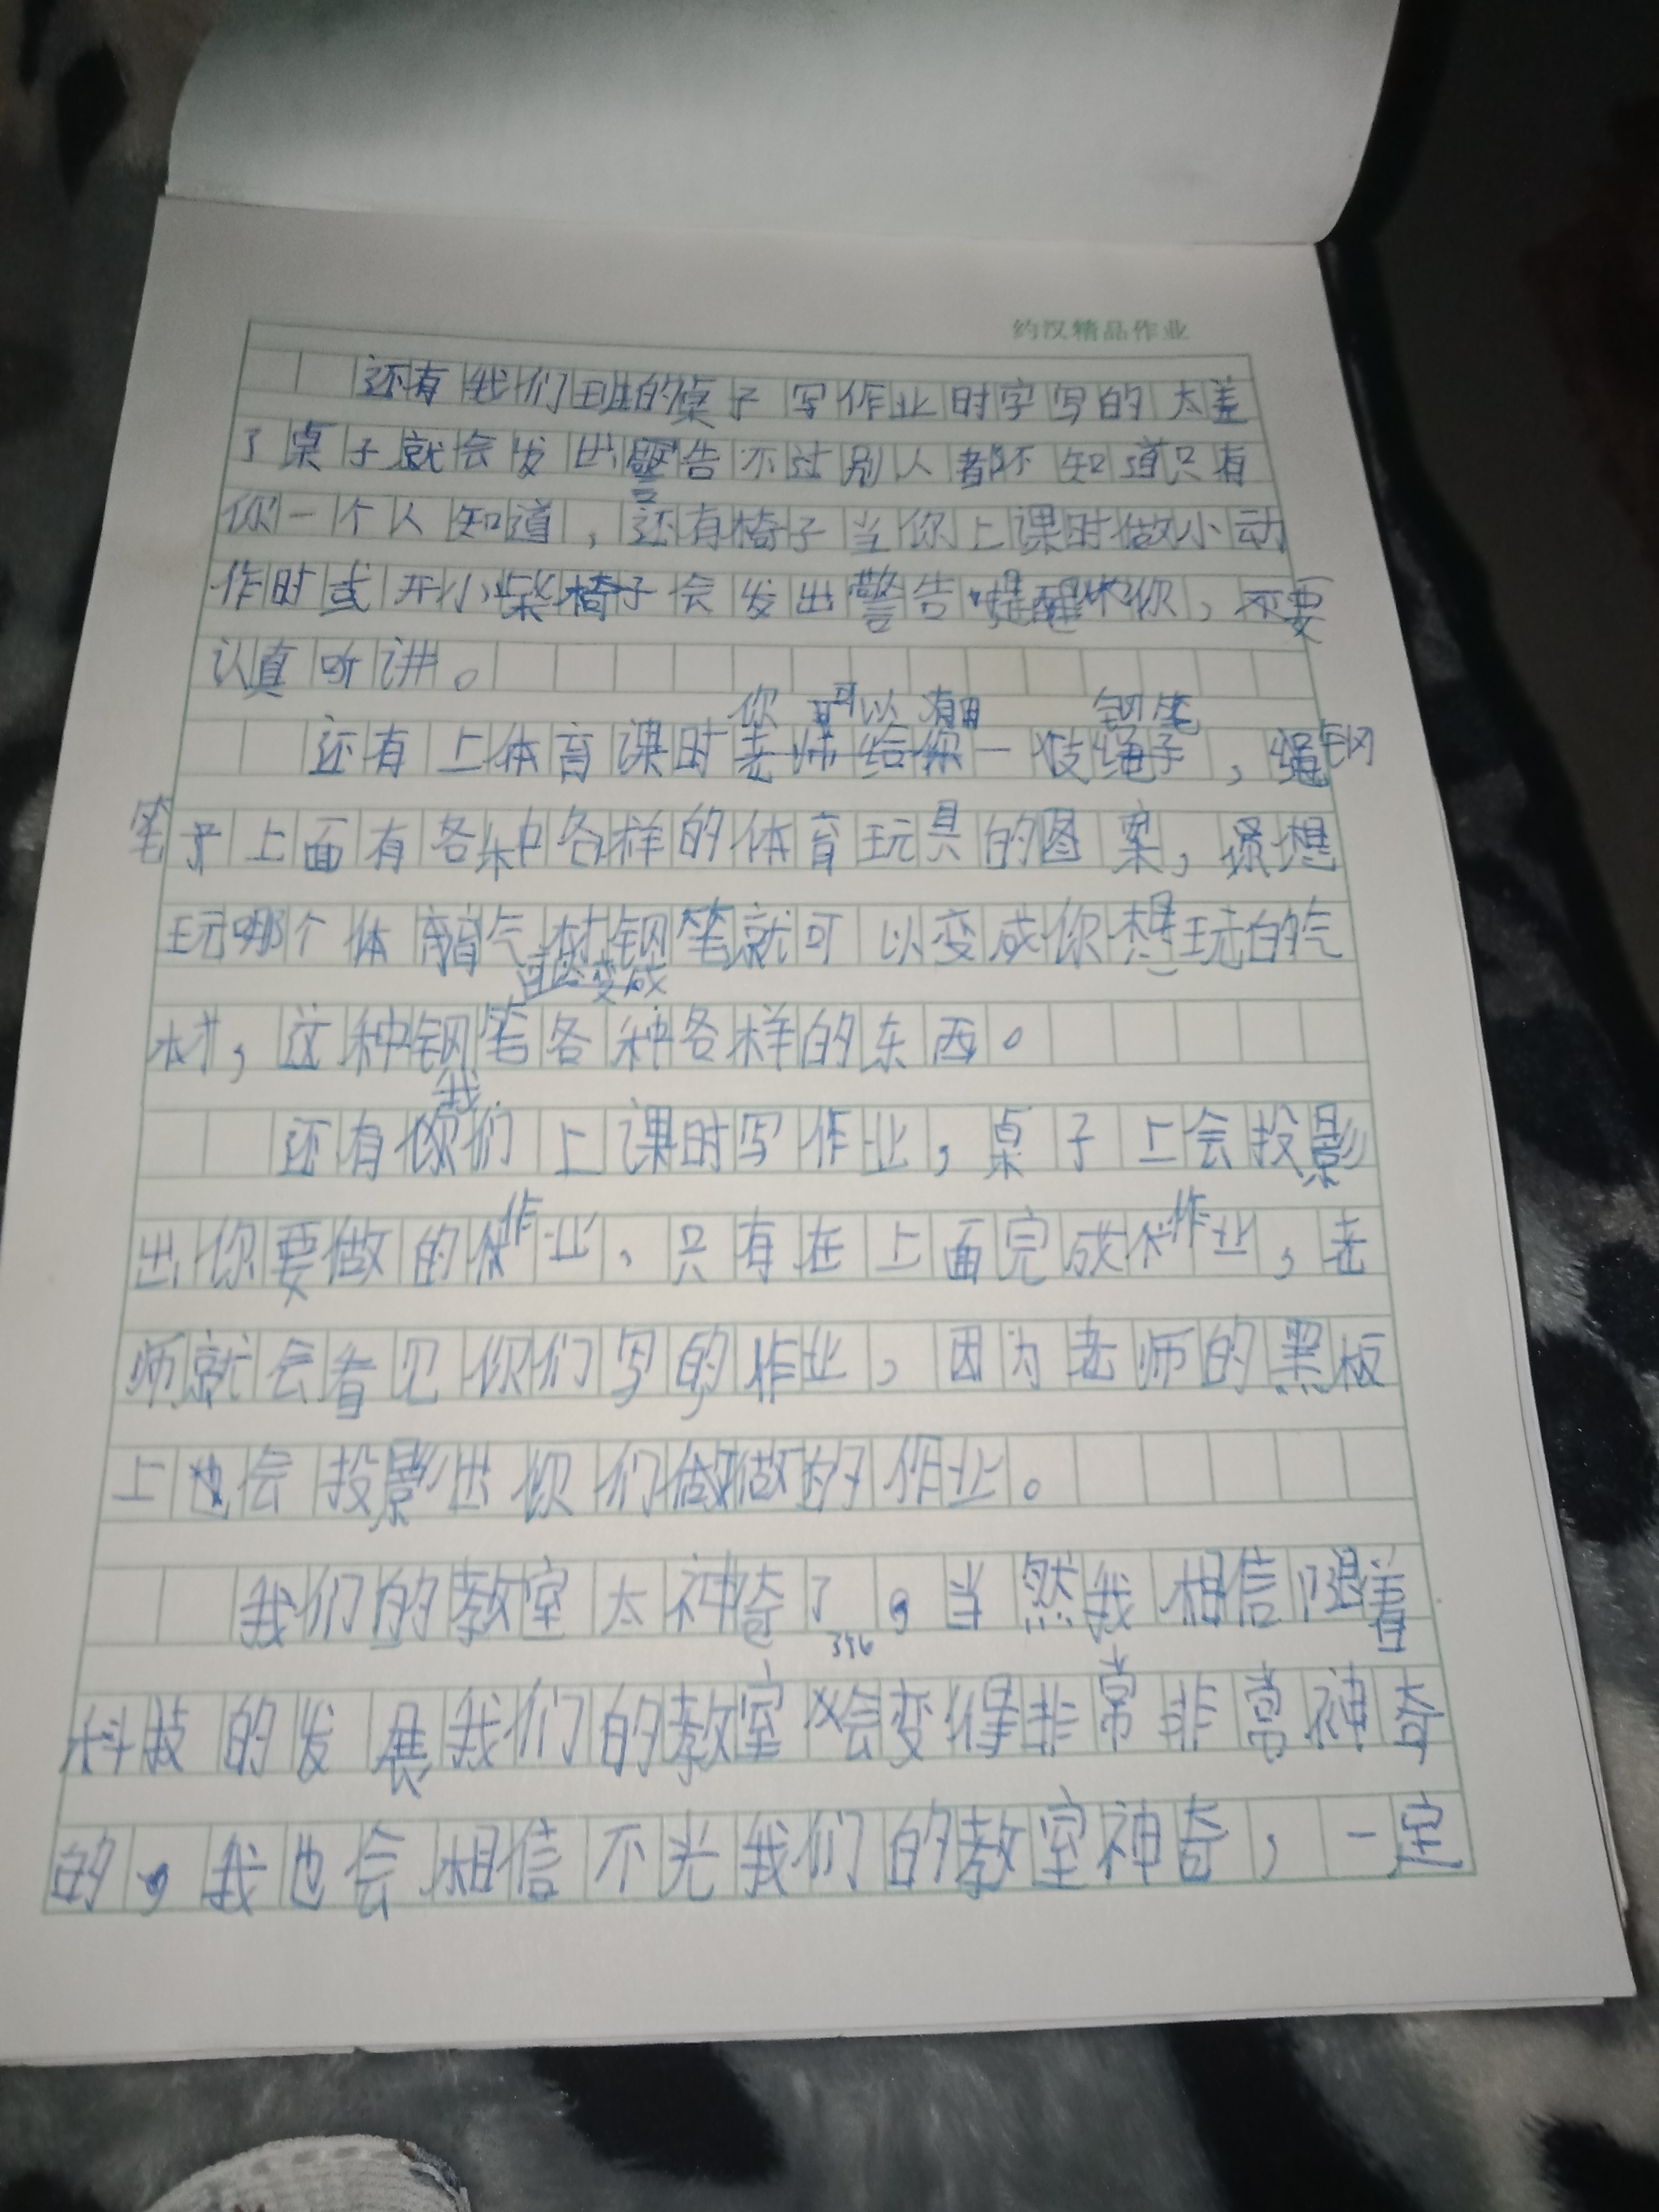 约汉精品作业
还有我们班的桌子写作业时字写的太差
了桌子就会发出警告不过别人都不知道只有
你一个人知道，还有椅子当你上课时做小动
作时或开小柴椅子会发出警告提醒你，要
认真听讲。
你可以有用 钢笔
还有上体育课时老师给你一枝绳子，绳钢
笔子上面有各种各样的体育玩具的图案，想
玩哪个体育气材钢笔就可以变成你想玩的气
变成
材，这种钢笔各种各样的东西。
我
还有你们上课时写作业，桌子上会投影
出你要做的作业、只有在上面完成作业，老
师就会看见你们写的作业，因为老师的黑板
上也会投影出你们做做的作业。
我们的教室太神奇了。当然我相信随着
396
科技的发展我们的教室会变得非常非常神奇
的，我也会相信不光我们的教室神奇，一定